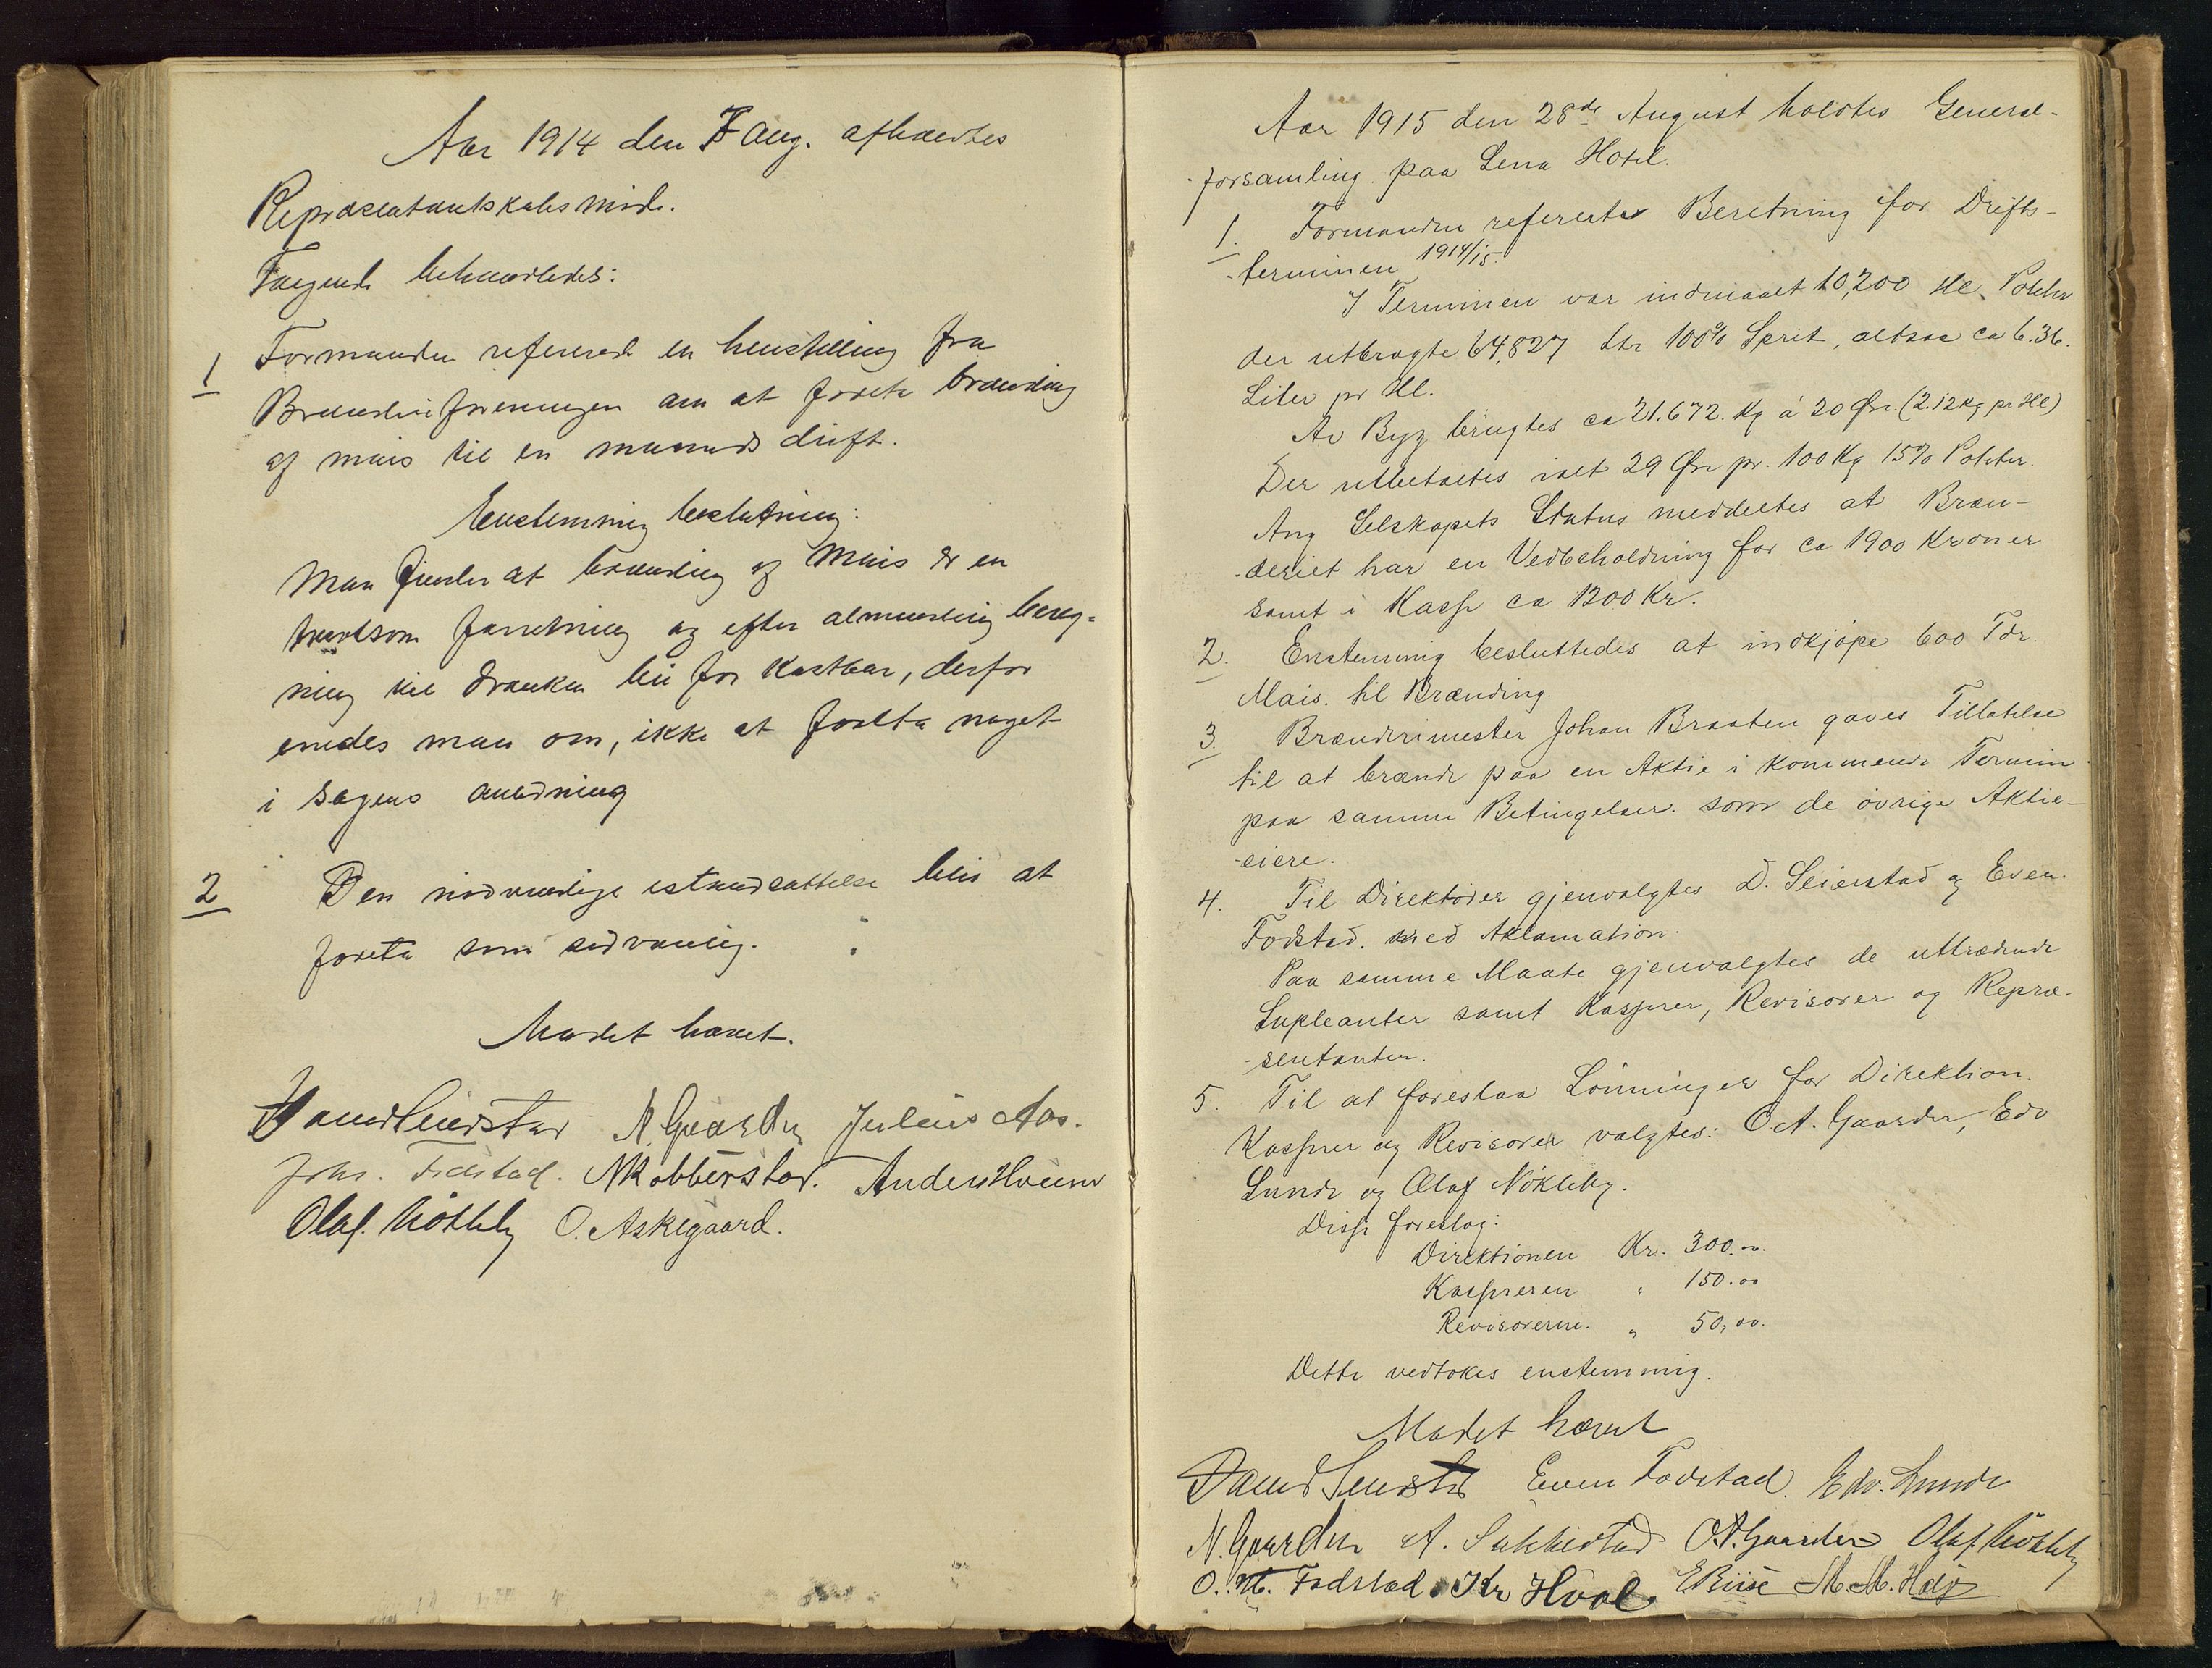 Aar 1914 den 7 Aug. afholdtes
Repræsentantskabsmöde.
Følgende behandledes:
1 Formanden refererede en henstilling fra
Brænderiforeningen om at foreta brænding
af mais til en maaneds drift.
Enstemmig beslutning:
Man finder at brænding af Mais er en
forretning og efter almindelig bereg-
ning vil dranken bli for kostbar, derfor
enedes man om, ikke at foreta noget
i sagens anledning
2 Den nödvendige istandsættelse blir at
foreta som sedvanlig.
Mødet hævet.
N. Gaarder Julius Aas.
Johs. Fodstad. N Kobberstad. Anders Hveem
Olaf. Nökleby O. Askegaard.
Aar 1915 den 28de August holdtes General-
-forsamling paa Lena Hotel.
1. Formanden refererte Beretning for Drifts-
-terminen 1914/15.
I Terminen var indmaalt 10,200 Hl. Poteter
der utbragte 64,827 Ltr 100% Sprit, altsaa ca 6.36.
Liter pr Hl.
Av Byg brugtes ca 21.672. Kg á 20 Øre (2.12 kg pr Hl)
Der utbetaltes ialt 29 Øre pr. 100 Kg 15% Poteter.
Ang Selskapets Status meddeltes at Bræn-
-deriet har en Vedbeholdning for ca 1900 Kroner
samt i Kasse ca 1200 Kr.
2. Enstemmig besluttedes at indkjöpe 600 Tdr.
Mais. til Brænding.
3. Brænderimester Johan Braaten gaves Tillatelse
til at brænde paa en Aktie i kommende Termin
paa samme Betingelser. som de övrige Aktie-
-eiere.
4. Til Direktörer gjenvalgtes D. Seierstad og Even
Fodstad. med Aklamation.
Paa samme Maate gjenvalgtes de uttrædende
Supleanter samt Kasserer, Revisorer og Repræ-
-sentanter.
5. Til at foreslaa Lönninger for Direktion.
Kasserer og Revisorer valgtes: O. A. Gaarder, Edv
Lunde og Olaf Nökleby.
Disse foreslog:
Direktionen Kr. 300.00.
Kassereren " 150.00
Revisorerne. " 50,00.
Dette vedtokes enstemmig.
Mødet hævet
David Seierstad Even Fodstad. Edv. Lunde
N. Gaarder A. Sukkestad O.A. Gaarder Olaf. Nökleby
O. M. Fodstad. Kr Hval. E Riise M. M. Høijs